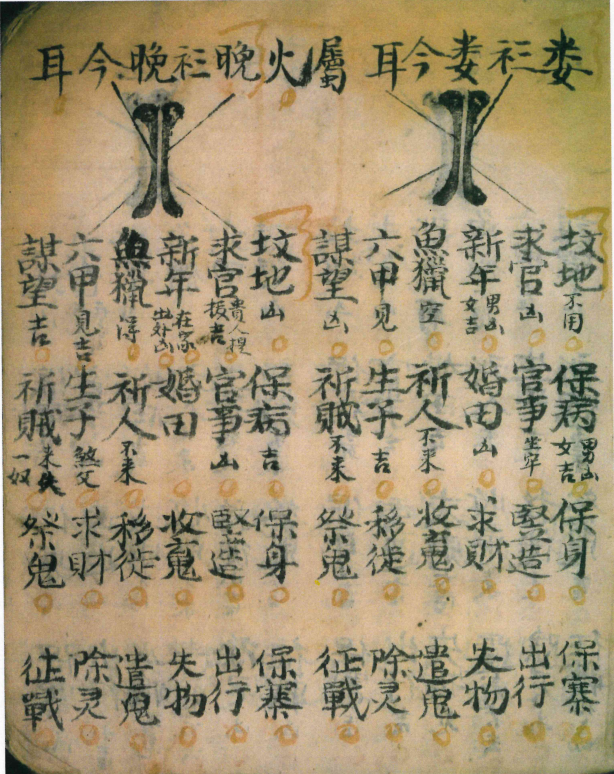 娄衫娄今耳
坟地不用 保病男凶女吉 保身 保寨
求官凶 官事坐牢 竪造 出行
新年男凶女吉 婚田凶 求財 失物
魚獵空 祈人不来 收 遣鬼
六甲見 生子吉 移徙 除灵
謀望凶 祈賊不来 祭鬼 征戰
屬火晚衫晚今耳
坟地凶 保病吉 保身 保寨
求官貴人提拔吉 官事凶 竪造 出行
新年在家出外凶 婚田 收 失物
魚獵得 祈人不来 移徙 遣鬼
六甲見吉 生子煞父 求財 除灵
謀望吉 祈賊来失一奴 祭鬼 征戰